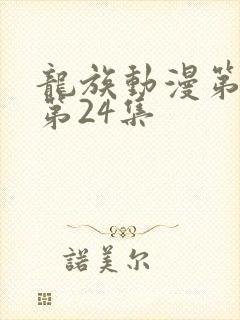 龍族動漫第
第24集
諾美尔